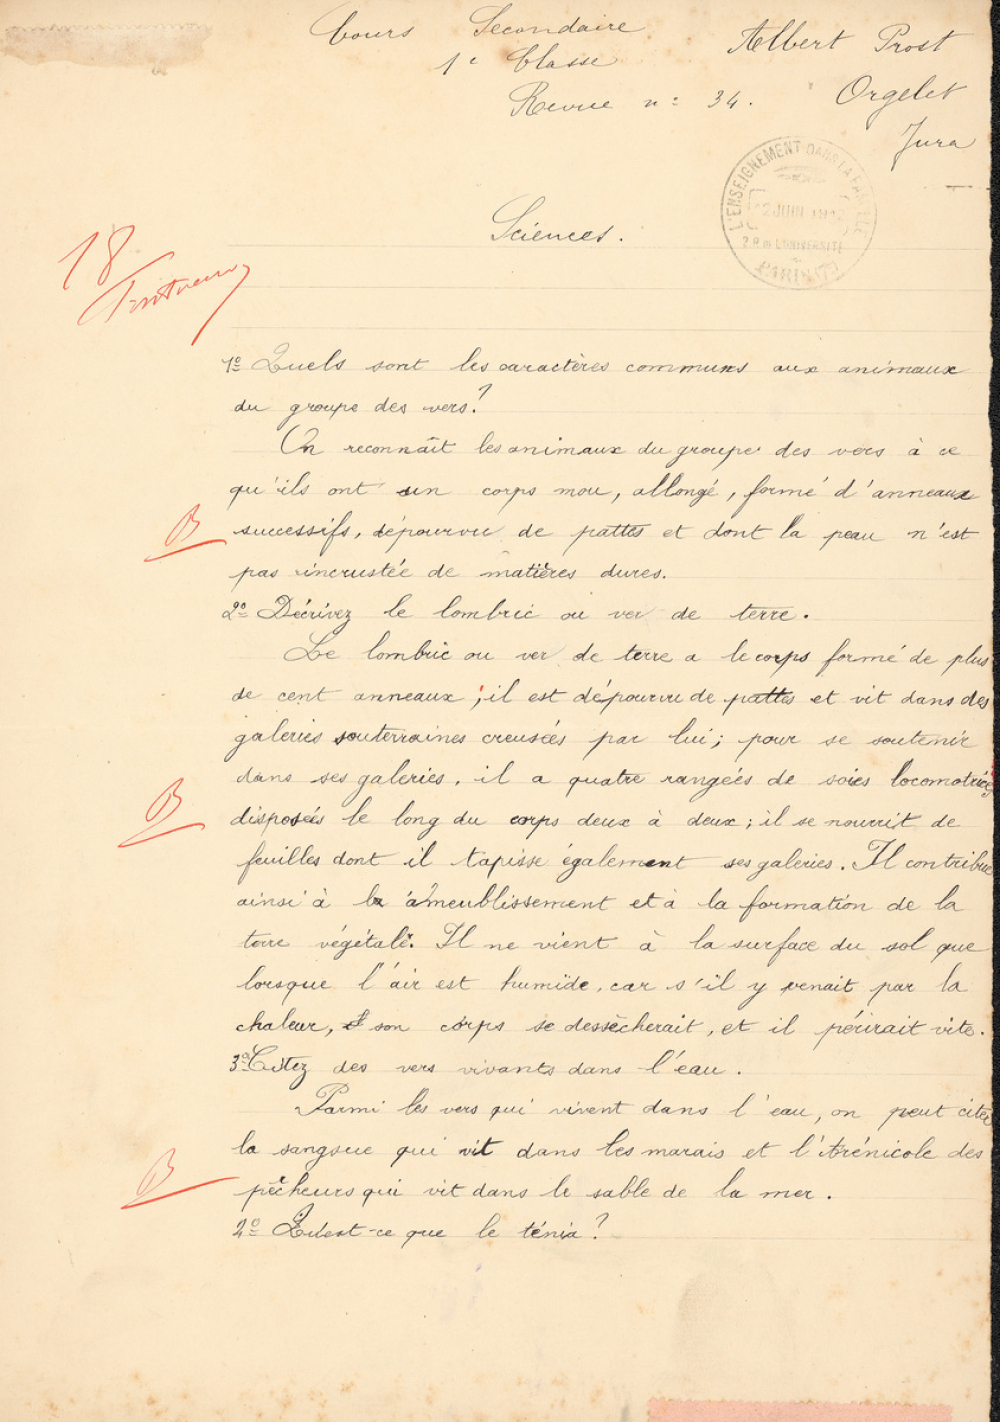 Cours Secondaire
Albert Prost
1e Classe
Revue no 34.
Orgelet
Jura
L'ENSEIGNEMENT DANS LA FAMILLE
2 JUIN
2 R de L'UNIVERSITÉ
PARIS (7e)
Sciences.
18
1o Quels sont les caractères communs aux animaux
du groupe des vers?
On reconnaît les animaux du groupe des vers à ce
qu'ils ont un corps mou, allongé, formé d'anneaux
B successifs, dépourvu de pattes et dont la peau n'est
pas incrustée de matières dures.
2o Décrivez le lombric ou ver de terre.
Le lombric ou ver de terre a le corps formé de plus
de cent anneaux ; il est dépourvu de pattes et vit dans des
galeries souterraines creusées par lui; pour se soutenir
dans ses galeries, il a quatre rangées de soies locomotrices
B disposées le long du corps deux à deux; il se nourrit de
feuilles dont il tapisse également ses galeries. Il contribue
ainsi à la ameublissement et à la formation de la
terre végétale. Il ne vient à la surface du sol que
lorsque l'air est humïde, car s'il y venait par la
chaleur, son corps se dessècherait, et il périrait vite.
3o Citez des vers vivants dans l'eau.
Parmi les vers qui vivent dans l'eau, on peut citer
la sangsue qui vit dans les marais et l'Arénicole des
B pêcheurs qui vit dans le sable de la mer.
4o Qu'est-ce que le ténia?